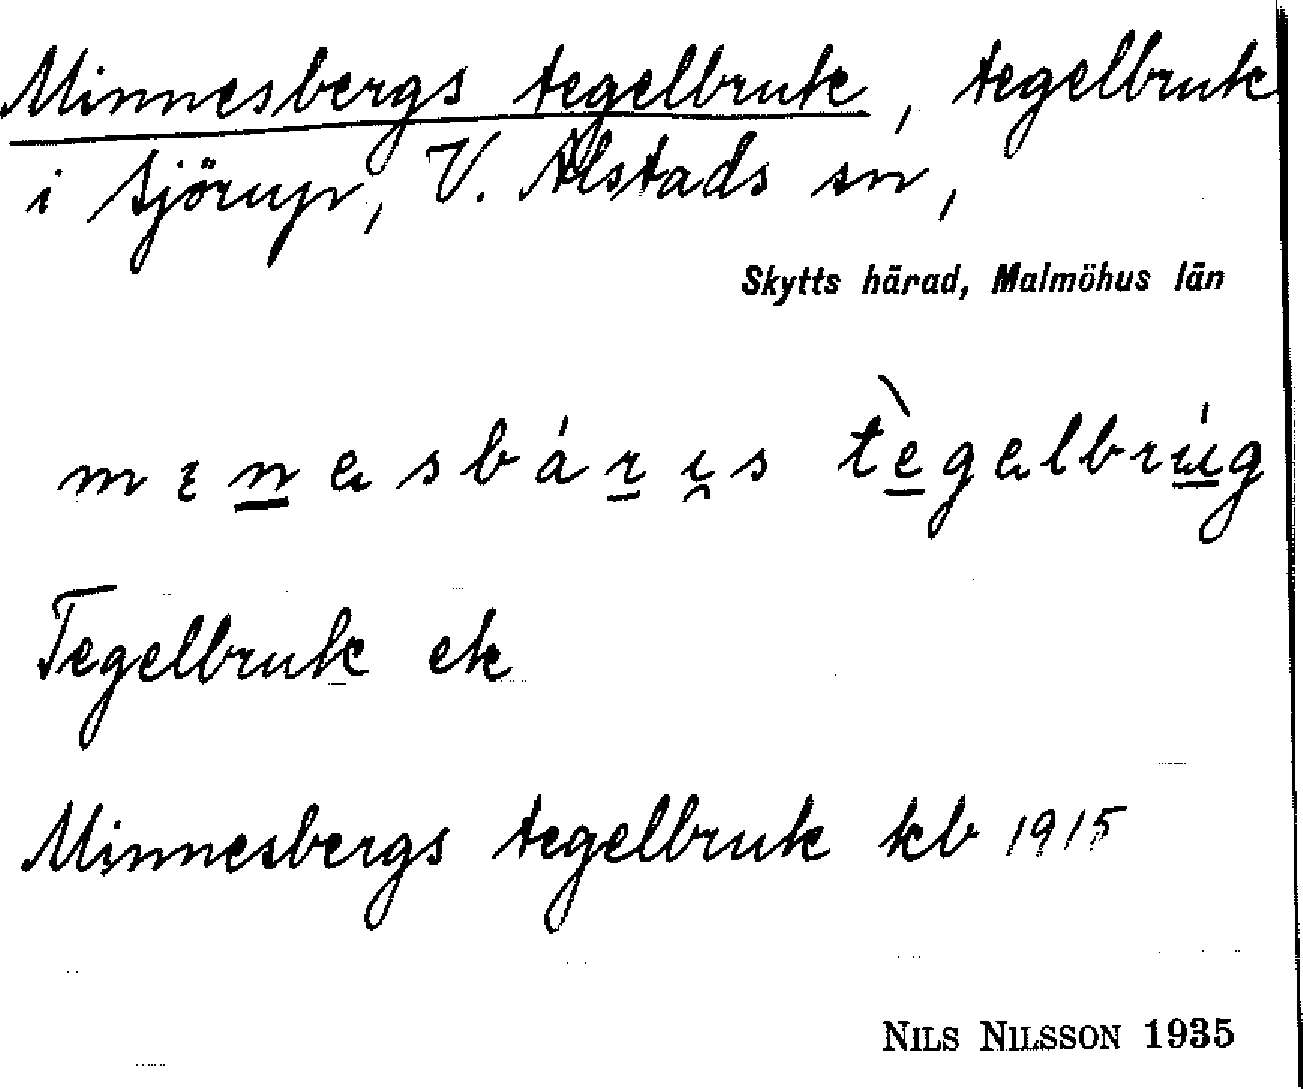 Minnesbergs tegelbruk, tegelbruk
i Sjörup, V. Alstads sn,
Skytts härad, Malmöhus län
tègelbrúg
Tegelbruk ek
Minnesbergs tegelbruk kb 1915
NILS NILSSON 1935